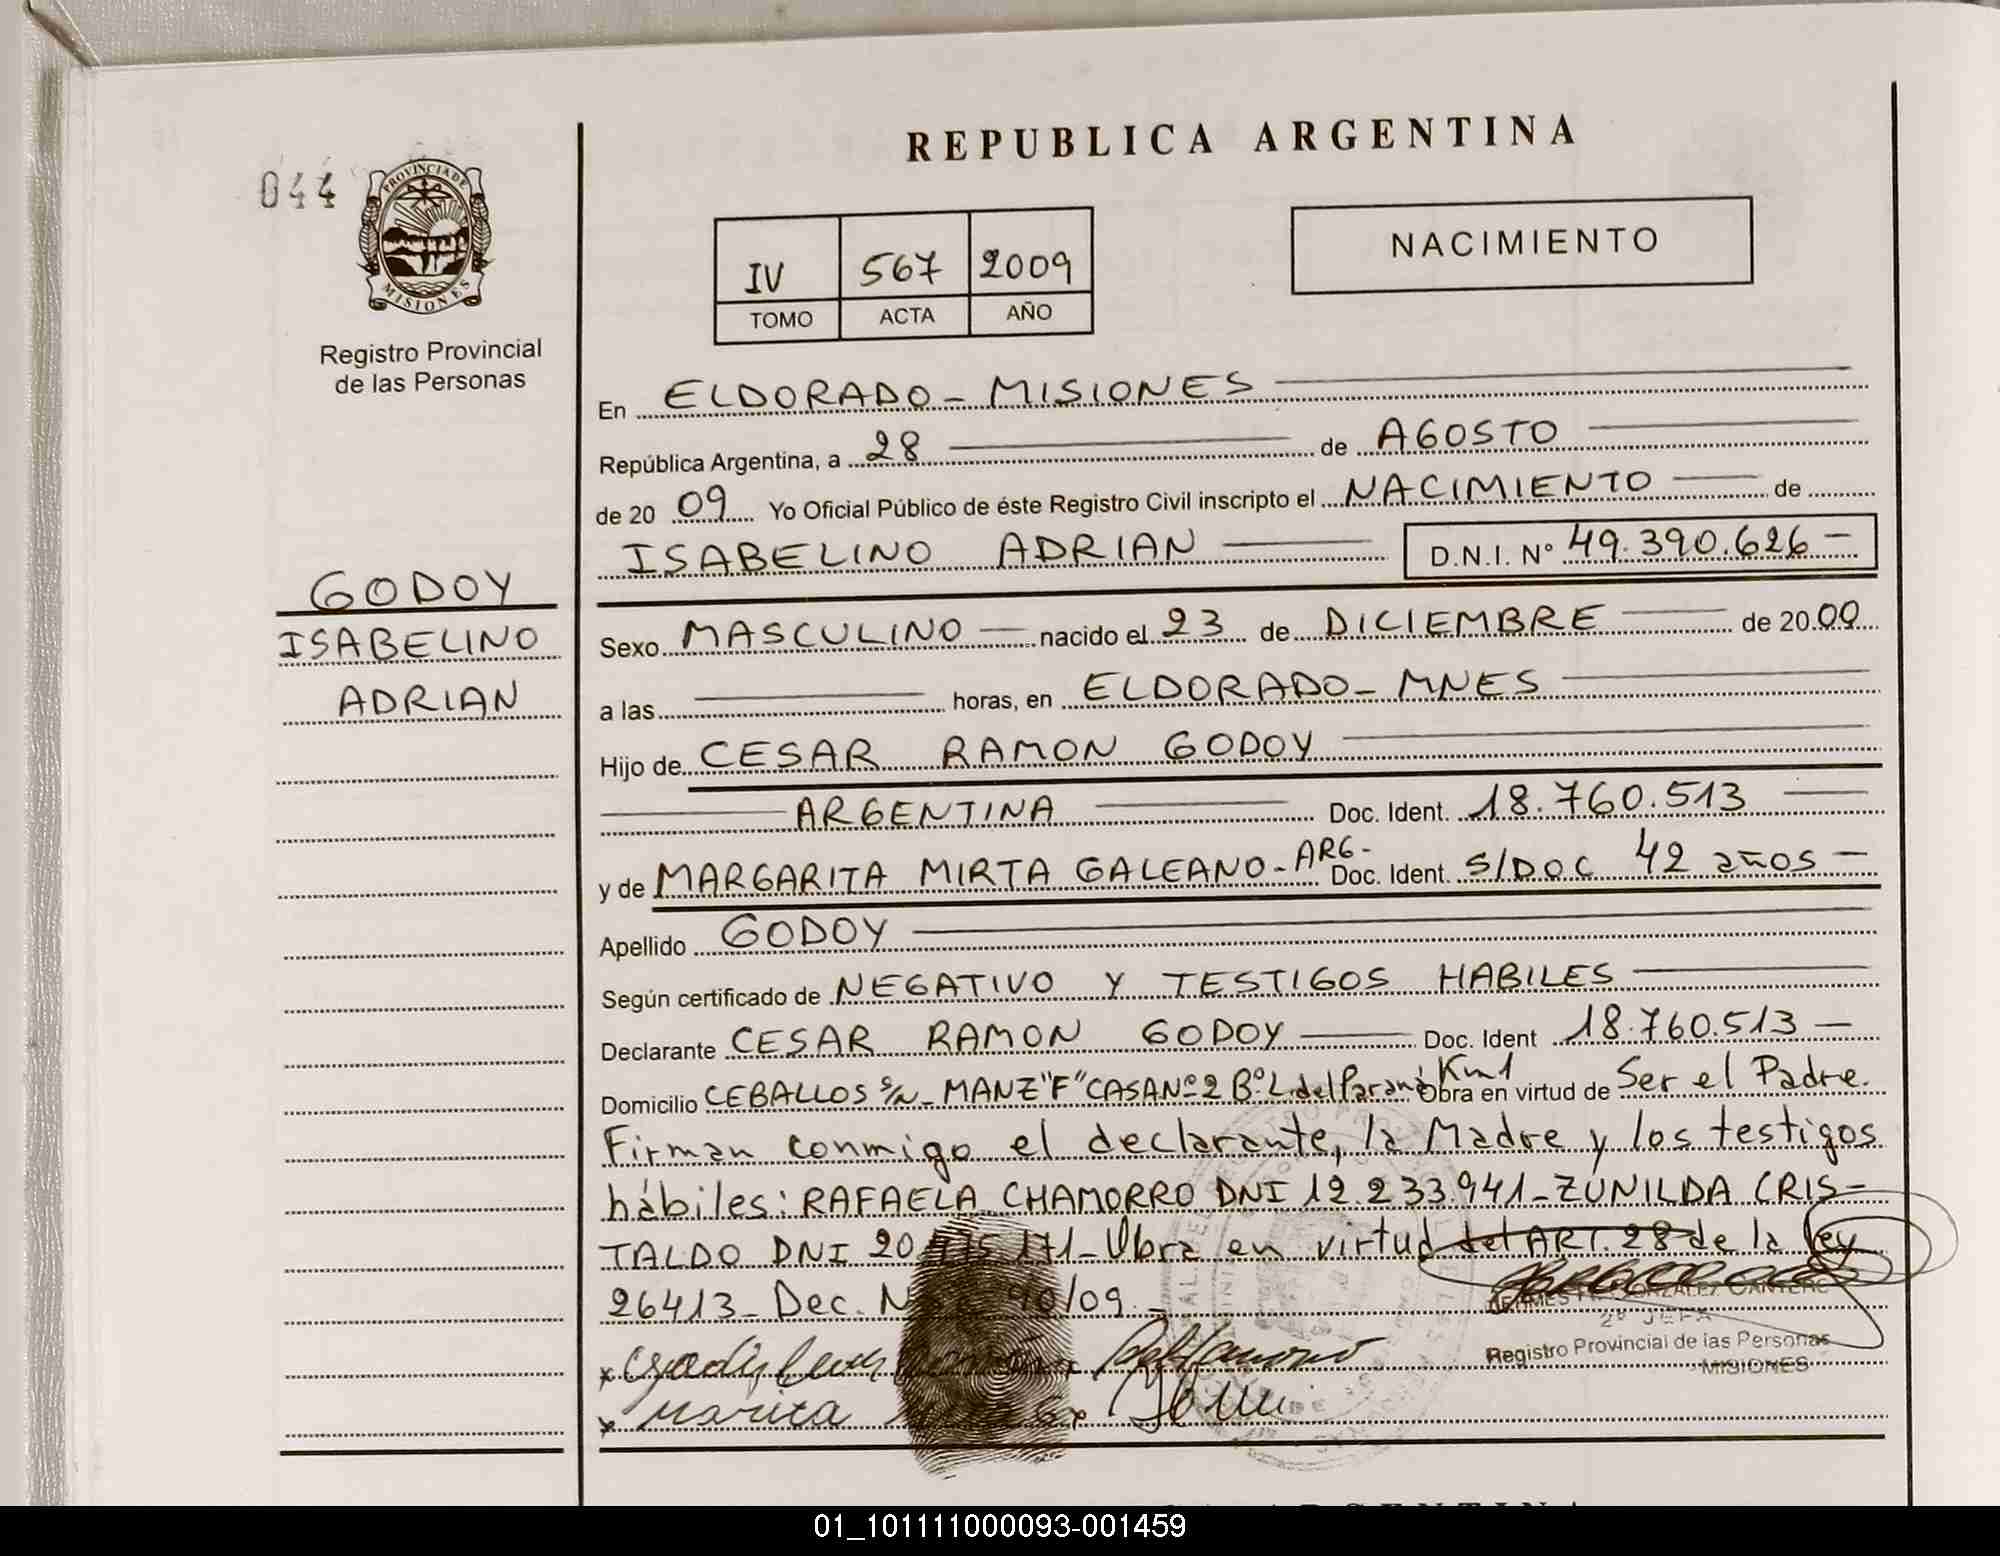 REPUBLICA ARGENTINA
044
PROVINCIA DE
MISIONES
Registro Provincial
de las Personas
NACIMIENTO
IV 567 2009
TOMO ACTA AÑO
En ELDORADO - MISIONES
República Argentina, a 28 de AGOSTO
de 2009 Yo Oficial Público de éste Registro Civil inscripto el NACIMIENTO de
ISABELINO ADRIAN D.N.I. Nº 49.390.626-
GODOY
ISABELINO
ADRIAN
Sexo MASCULINO nacido el 23 de DICIEMBRE de 2000
a las horas, en ELDORADO - MNES
Hijo de CESAR RAMON GODOY
ARGENTINA Doc. Ident. 18.760.513
y de MARGARITA MIRTA GALEANO - ARG- Doc. Ident. S/DOC 42 años -
Apellido GODOY
Según certificado de NEGATIVO Y TESTIGOS HABILES
Declarante CESAR RAMON GODOY Doc. Ident 18.760.513 -
Domicilio CEBALLOS S/N - MANZ "F" CASA Nº 2 Bº L. del Paraná Km 1 Obra en virtud de Ser el Padre.
Firman conmigo el declarante, la Madre y los testigos
hábiles: RAFAELA CHAMORRO DNI 12.233.941 - ZUNILDA CRIS-
TALDO DNI 20 171 - Obra en virtud del ART. 28 de la ley
26413 - Dec. N 90/09. -
2º JEFA
Registro Provincial de las Personas
MISIONES
01_101111000093-001459